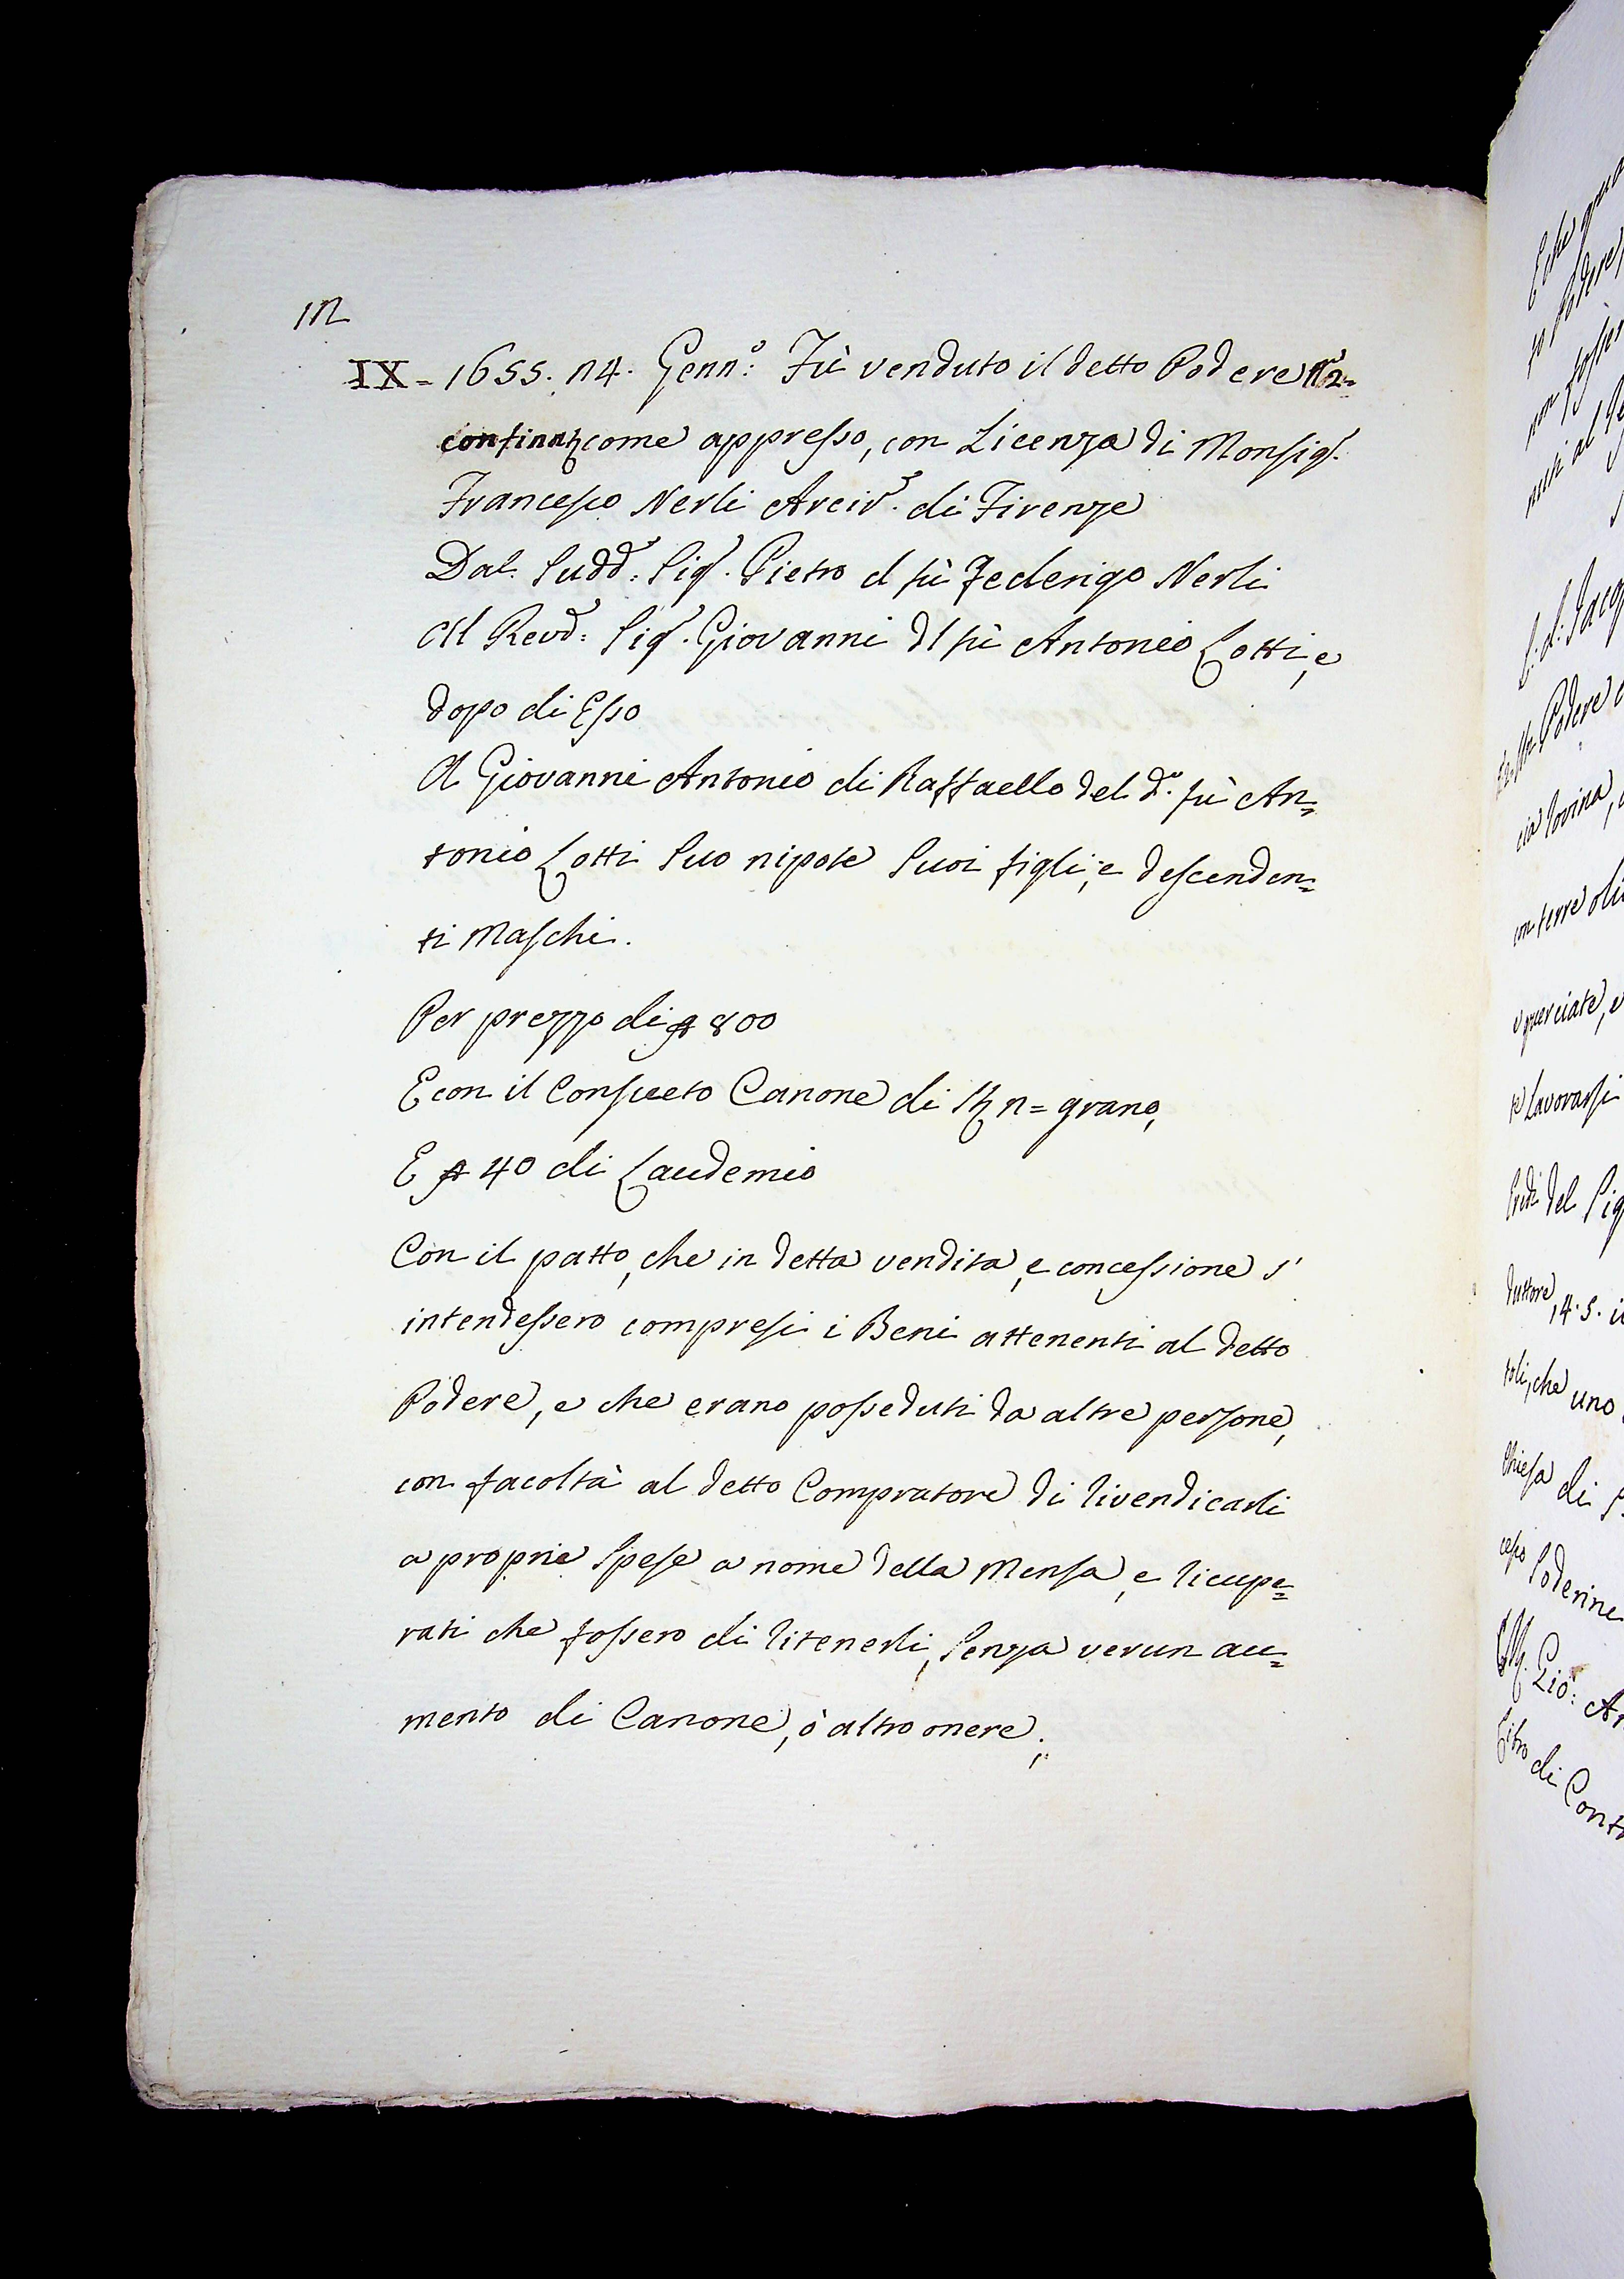 12
IX = 1655. 24. Genn:º Fù venduto il detto Podere
come appresso, con Licenza di Monsig.r
Francesco Nerli Arciv.º di Firenze
Dal Sudd.º: Sig.r Pietro d fù Federigo Nerli
Al Revd.º: Sig.r Giovanni dl fù Antonio Lotti, e
dopo di Esso
A Giovanni Antonio di Raffaello del d.º fù An=
tonio Lotti Suo nipote Suoi figli, e descenden=
ti Maschi.
Per prezzo di 800
E con il Consueto Canone di grano,
E 40 di Laudemio
Con il patto, che in detta vendita, e concessione s'
intendessero compresi i Beni attenenti al detto
Podere, e che erano posseduti da altre persone,
con facoltà al detto Compratore di rivendicarli
a proprie Spese a nome della Mensa, e ricupe=
rati che fossero di ritenerli, Senza verun au=
mento di Canone, ò altro onere;
Podere
con terre
Lavorarsi
del Sig
14. S.
che uno
Chiesa di
Soderini
Gio: An
di Cont